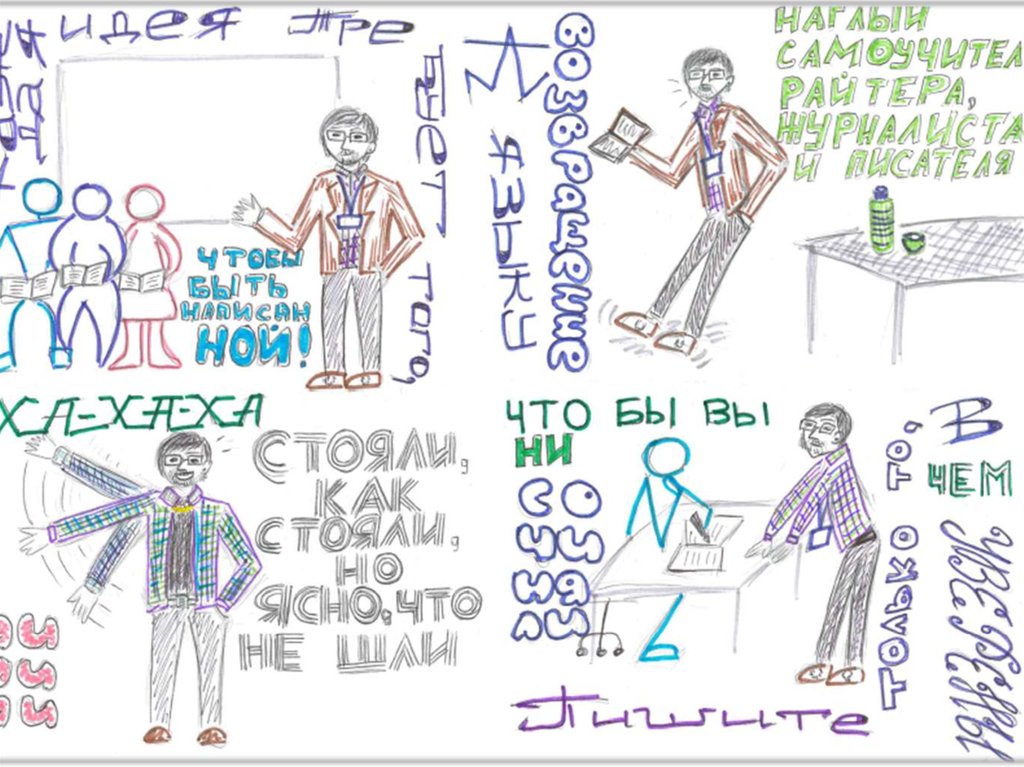 ИДЕЯ ТРЕ
БУЕТ
ТОГО,
ЧТОБЫ
БЫТЬ
НАПИСАН
НОЙ!
ВОЗВРАЩЕНИЕ
К ЯЗЫКУ
НАГЛЫЙ
САМОУЧИТЕЛ
РАЙТЕРА,
ЖУРНАЛИСТА
И ПИСАТЕЛЯ
ХА-ХА-ХА
СТОЯЛИ,
КАК
СТОЯЛИ,
НО
ЯСНО, ЧТО
НЕ ШЛИ
ЧТО БЫ ВЫ
НИ
Пишите
ТОЛЬКО ТО,
В
ЧЕМ
УВЕРЕНЫ